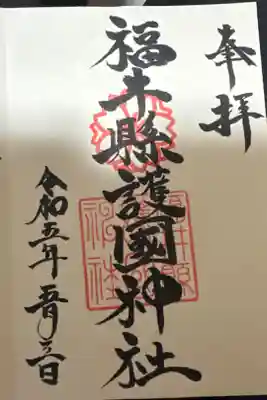 奉拝
福井縣護國神社
令和五年五月三日